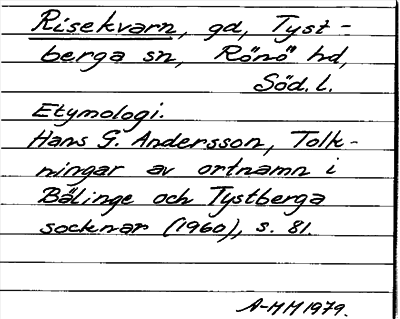 Risekvarn, gd, Tyst-
berga sn, Rönö hd,
Söd. l.
Etymologi.
Hans G. Andersson, Tolk-
ningar av ortnamn i
Bälinge och Tystberga
socknar (1960), s. 81.
A-MM 1979.